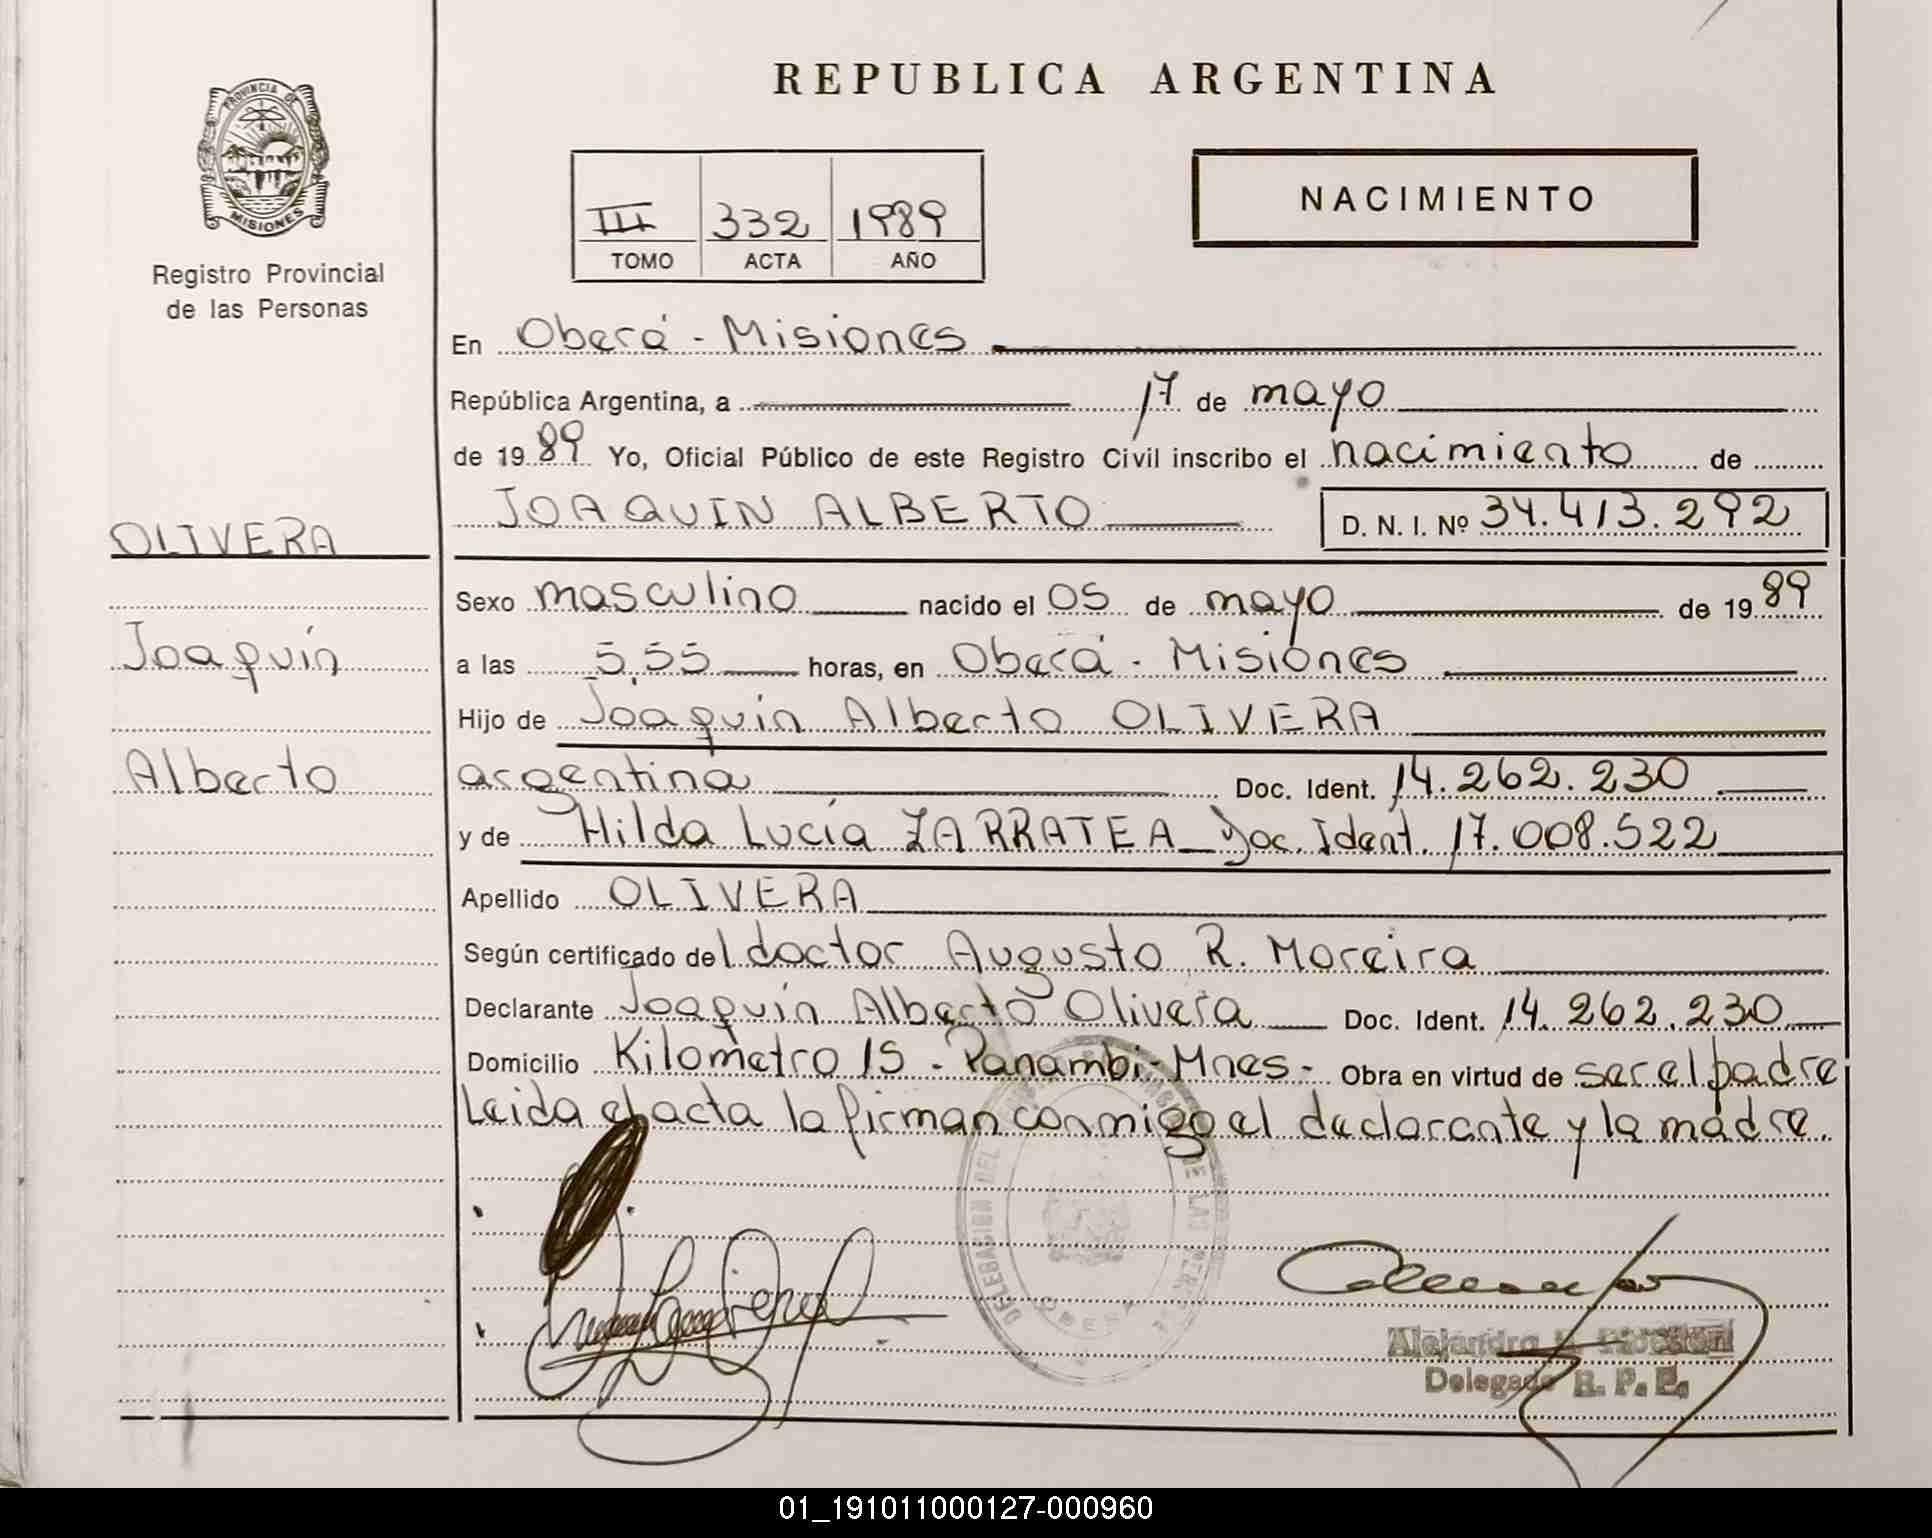 REPUBLICA ARGENTINA
PROVINCIA DE
MISIONES
Registro Provincial
de las Personas
NACIMIENTO
III 332 1989
TOMO ACTA AÑO
En Oberá - Misiones
República Argentina, a 17 de mayo
de 1989 Yo, Oficial Público de este Registro Civil inscribo el nacimiento de
JOAQUIN ALBERTO D. N. I. Nº 34.413.292
OLIVERA
Joaquín
Alberto
Sexo masculino nacido el 05 de mayo de 1989
a las 5,55 horas, en Oberá - Misiones
Hijo de Joaquín Alberto OLIVERA
argentina Doc. Ident. 14.262.230
y de Hilda Lucía ZARRATEA Doc. Ident. 17.008.522
Apellido OLIVERA
Según certificado del doctor Augusto R. Moreira
Declarante Joaquín Alberto Olivera Doc. Ident. 14.262.230
Domicilio Kilómetro 15 - Panambí - Mnes - Obra en virtud de ser el padre
Leida el acta la firman conmigo el declarante y la madre.
DELEGACION DEL DE LAS
Alejandro
Delegado R. P. P.
01_191011000127-000960